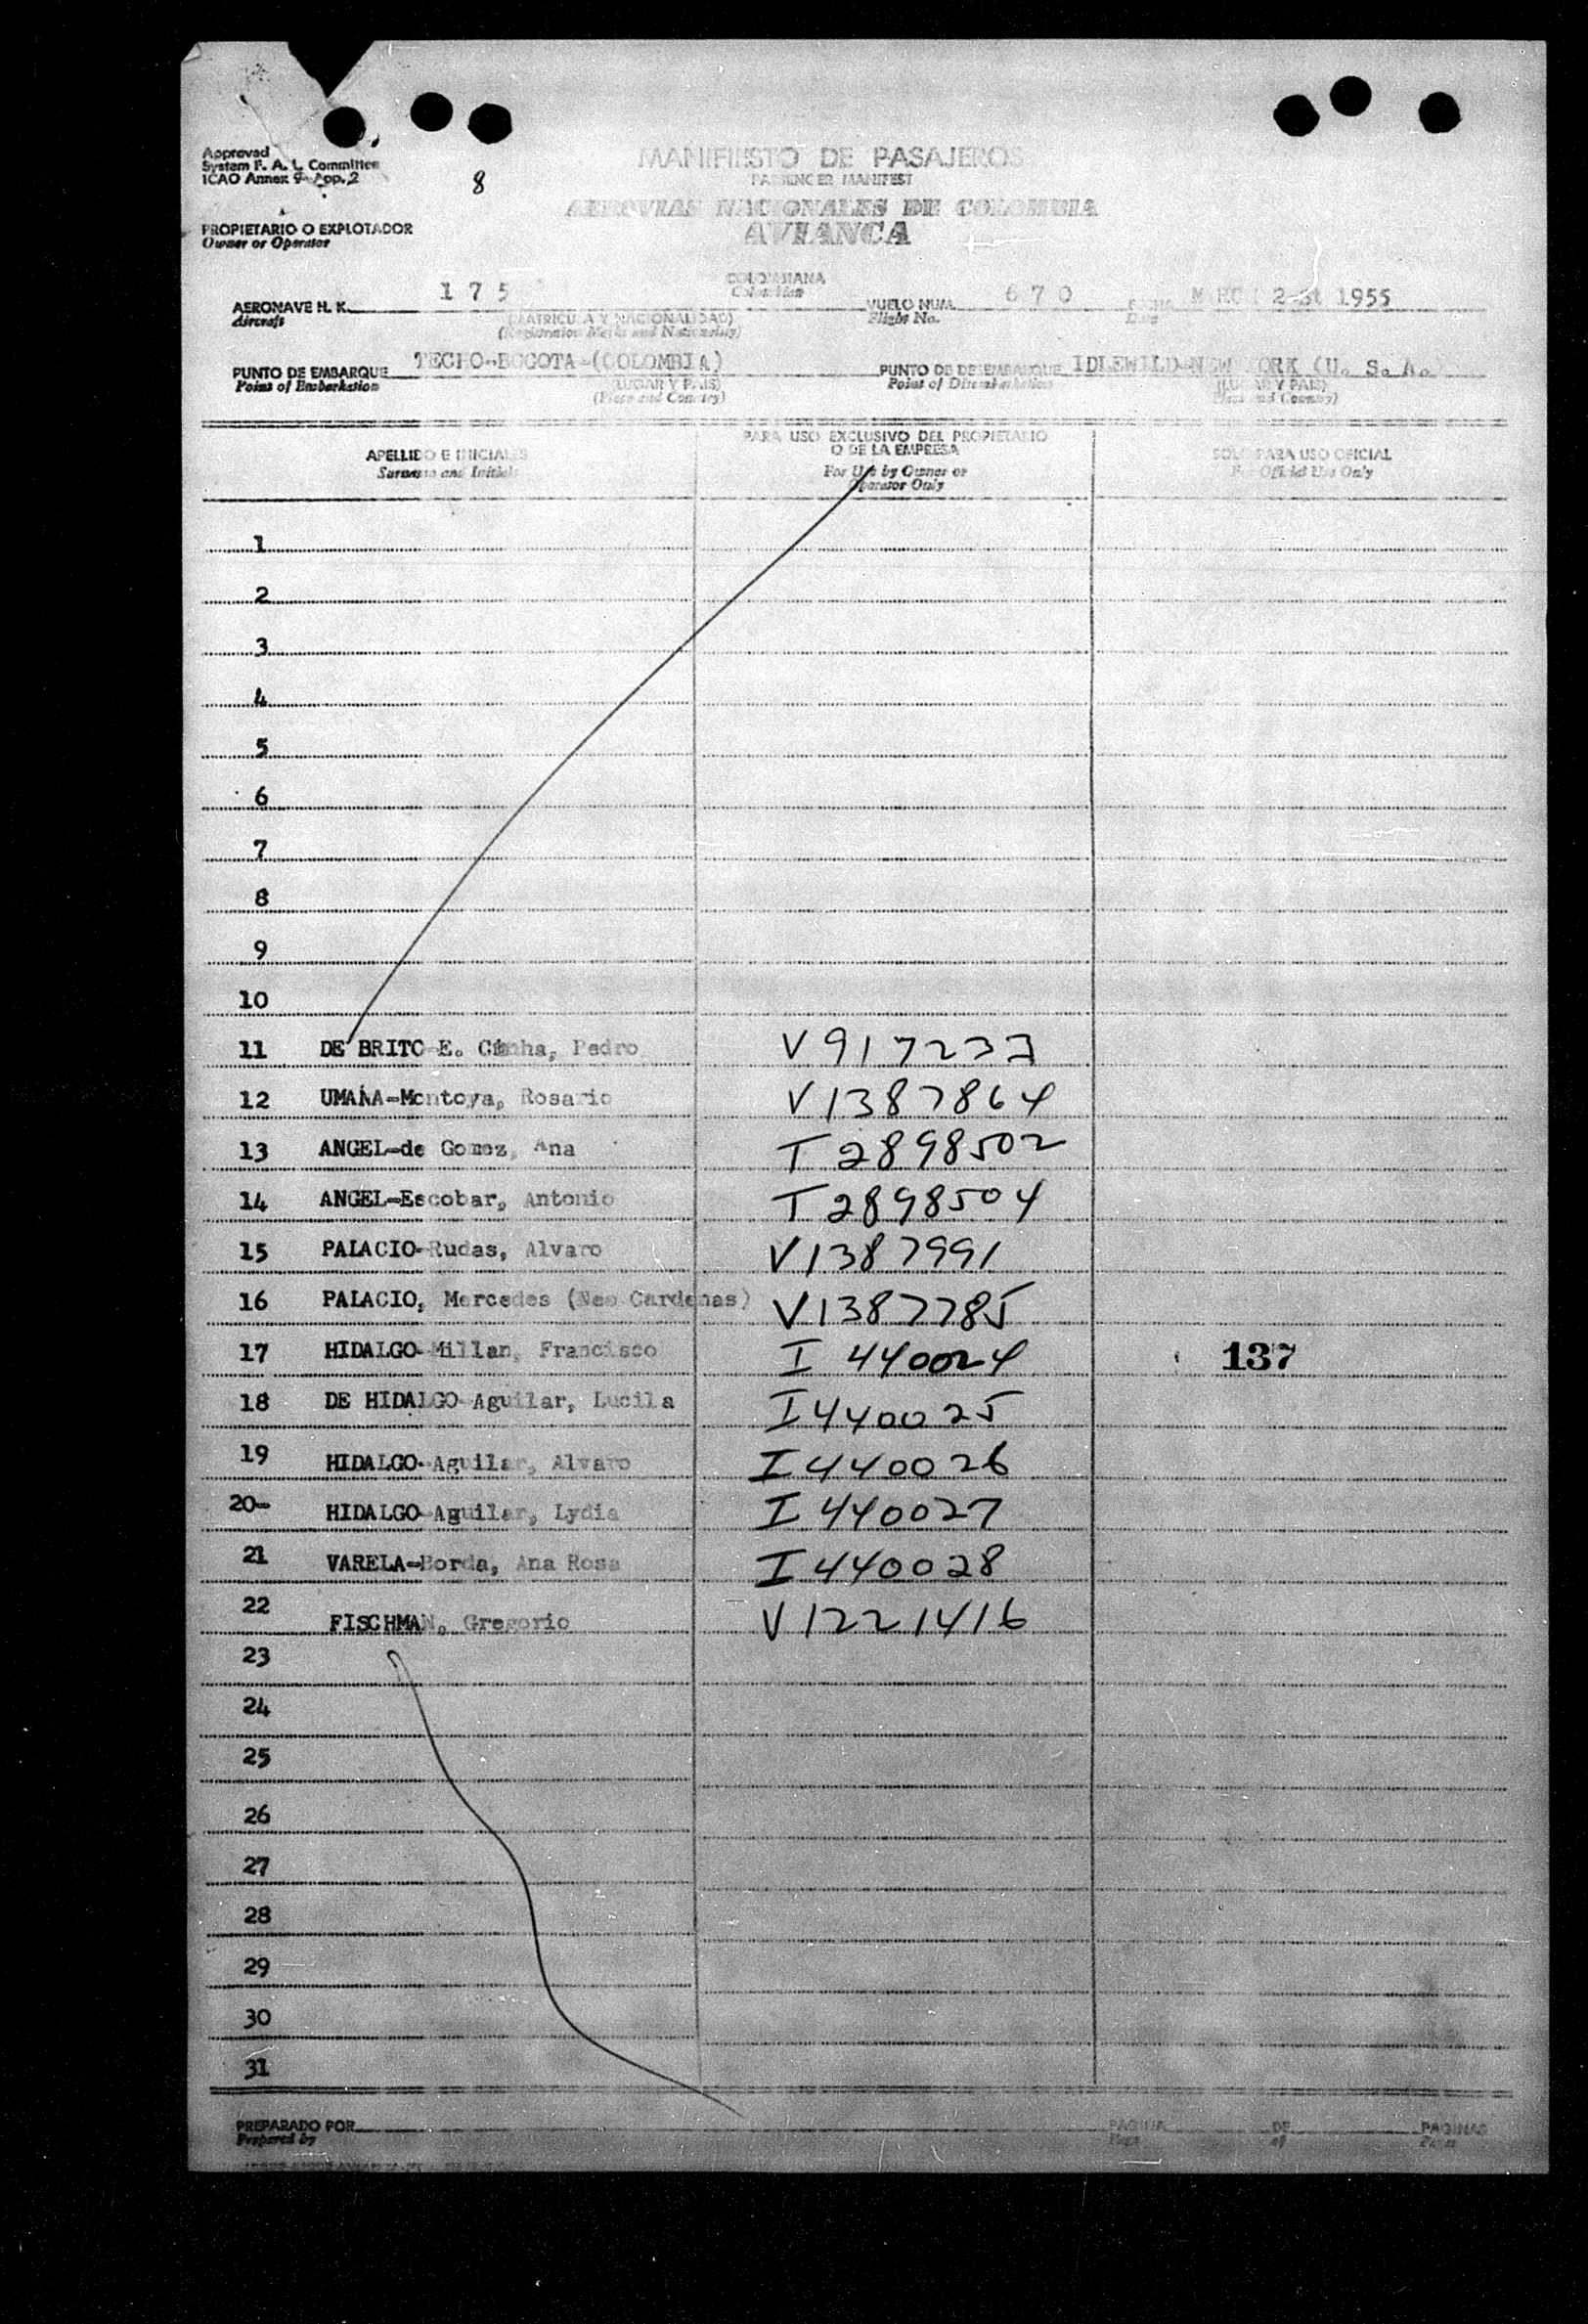 Approved
System F. A. L. Committee
ICAO Annex 9-App. 2
8
MANIFIESTO DE PASAJEROS
PASSENGER MANIFEST
AEROVIAS NACIONALES DE COLOMBIA
AVIANCA
PROPIETARIO O EXPLOTADOR
Owner or Operator
AERONAVE H. K. 175 COLOMBIANA VUELO NUM. 670 FECHA 1955
Aircraft (MATRICULA Y NACIONALIDAD) Colombian Flight No. Date
(Registration Marks and Nationality)
PUNTO DE EMBARQUE TECHO-BOGOTA-(COLOMBIA) PUNTO DE DESEMBARQUE IDLEWILD-NEW YORK (U. S. A.
Point of Embarkation (LUGAR Y PAIS) Point of Disembarkation (LUGAR Y PAIS)
(Place and Country) (Place and Country)
APELLIDO E INICIALES PARA USO EXCLUSIVO DEL PROPIETARIO SOLO PARA USO OFICIAL
O DE LA EMPRESA
Surname and Initials For Use by Owner or For Official Use Only
Operator Only
1
2
3
4
5
6
7
8
9
10
11 DE BRITO-E. Cunha, Pedro V917237
12 UMAÑA-Montoya, Rosario V1387864
13 ANGEL-de Gomez, Ana T2898502
14 ANGEL-Escobar, Antonio T2898504
15 PALACIO-Rudas, Alvaro V1387991
16 PALACIO, Mercedes (Nee Cardenas) V1387785
17 HIDALGO-Millan, Francisco I 440024 137
18 DE HIDALGO-Aguilar, Lucila I440025
19 HIDALGO-Aguilar, Alvaro I440026
20- HIDALGO-Aguilar, Lydia I440027
21 VARELA-Borda, Ana Rosa I440028
22 FISCHMAN, Gregorio V1221416
23
24
25
26
27
28
29
30
31
PREPARADO POR PAGINA DE PAGINAS
Prepared by Page of Pages